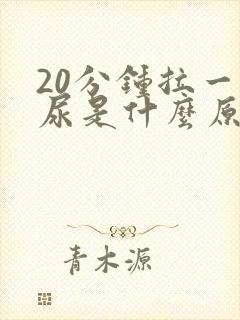 20分鍾拉一
尿是什麼原
青木源